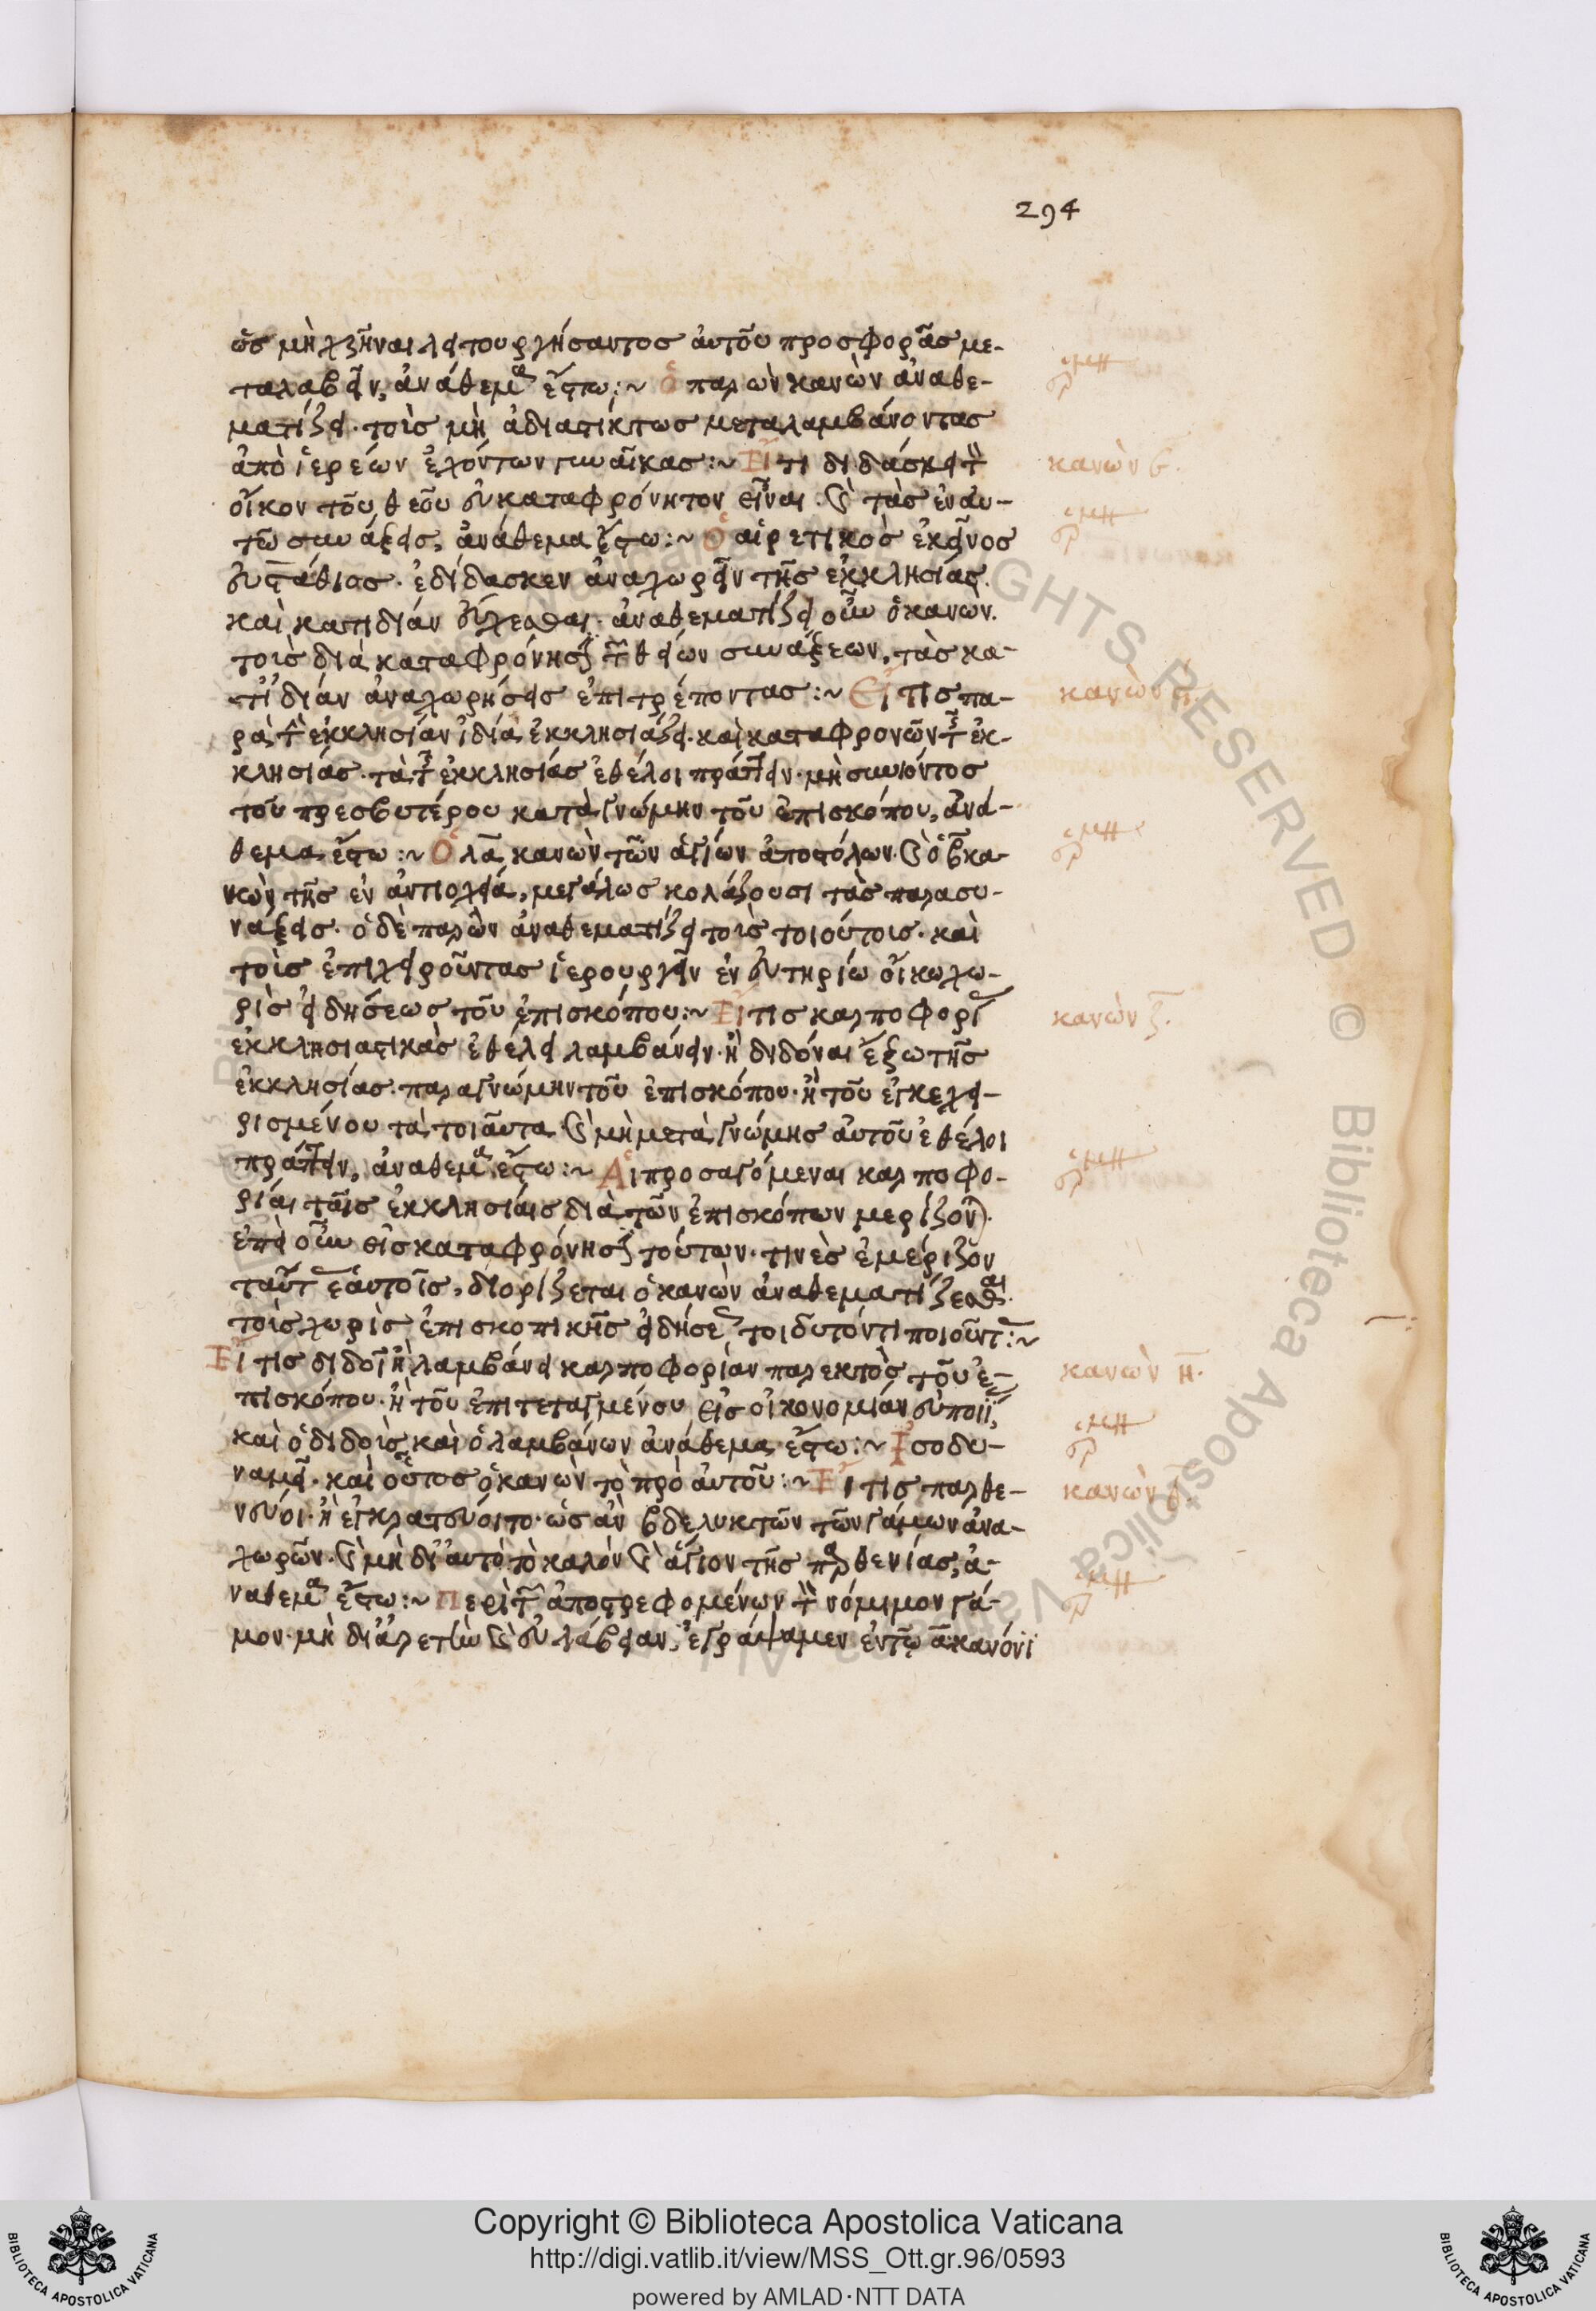 294
ὡς μὴ χρῆναι λειτουργήσαντος αὐτοῦ προσφορᾶς με-
ταλαβεῖν, ἀνάθεμα ἔστω :~ ὁ παρὼν κανὼν ἀναθε-
ματίζει· τοὺς μὴ ἀδιαστίκτως μεταλαμβάνοντας
ἀπὸ ἱερέων ἐχόντων γυναῖκας :~ Εἴ τι διδάσκει τὸν
κανὼν ε.
οἶκον τοῦ θεοῦ εὐκαταφρόνητον εἶναι. καὶ τὰς ἐν αυ-
τῶ συνάξεις, ἀνάθεμα ἔστω :~ Ὁ αἱρετικὸς ἐκεῖνος
εὐστάθιος· ἐδίδασκεν ἀναχωρεῖν τῆς ἐκκλησίας.
καὶ κατιδιάν εὔχεσθαι· ἀναθεματίζει οὖν ὁ κανὼν.
τοὺς διὰ καταφρόνησιν τῶν θείων συνάξεων, τὰς κα-
τἰδιάν ἀναχωρήσεις ἐπιτρέποντας :~ Εἴ τις πα-
κανὼν ϛ.
ρὰ τὴν ἐκκλησίαν ἰδία ἐκκλησιάζει· καὶ καταφρονῶν τῆς ἐκ-
κλησίας· τὰ τῆς ἐκκλησίας ἐθέλοι πράττειν· μὴ συνιόντος
τοῦ πρεσβυτέρου κατὰ γνώμην τοῦ ἐπισκόπου, ἀνά-
θεμα ἔστω :~ Ὁ λα κανὼν τῶν ἁγίων ἀποστόλων· καὶ ὁ ε κα-
νὼν τῆς ἐν ἀντιοχεία, μεγάλως κολάζουσι τὰς παρασυ-
νάξεις· ὁ δὲ παρὼν ἀναθεματίζει τοὺς τοιούτοις· καὶ
τοὺς ἐπιχειροῦντας ἱερουργεῖν ἐν εὐκτηρίω οἴκω χω-
ρὶς εἰδήσεως τοῦ ἐπισκόπου :~ Εἴ τις καρποφορίας
κανὼν ζ.
ἐκκλησιαστικὰς ἐθέλει λαμβάνειν· ἢ διδόναι ἔξω τῆς
ἐκκλησίας· παρα γνώμην τοῦ ἐπισκόπου· ἢ τοῦ ἐγκεχει-
ρισμένου τὰ τοιαῦτα· καὶ μὴ μετὰ γνώμης αὐτοῦ ἐθέλοι
πράττειν, ἀνάθεμα ἔστω :~ Αἱ προσαγόμεναι καρποφο-
ρίαι ταῖς ἐκκλησίαις διὰ τῶν ἐπισκόπων μερίζονται·
ἐπεὶ οὖν εἰς καταφρόνησιν τούτων· τινὲς ἐμέριζον
ταῦτα ἑαυτοῖς, διορίζεται ὁ κανὼν ἀναθεματίζεσθαι·
τοὺς χωρὶς ἐπισκοπικῆς εἰδήσεως τοιοῦτόν τι ποιοῦντας :~
Εἴ τις διδοῖ ἢ λαμβάνει καρποφορίαν παρεκτὸς τοῦ ἐ-
κανὼν η.
πισκόπου· ἢ τοῦ ἐπιτεταγμένου εἰς οἰκονομίαν εὐποιίας,
καὶ ὁ διδοὺς, καὶ ὁ λαμβάνων ἀνάθεμα ἔστω :~ Ἰσοδυ-
ναμεῖ· καὶ οὗτος ὁ κανὼν τῷ πρὸ αὐτοῦ :~ Εἴ τις παρθε-
κανὼν θ.
νεύοι· ἢ ἐγκρατεύοιτο· ὡς ἂν βδελυκτῶν τῶν γάμων ἀνα-
χωρῶν· καὶ μὴ δι' αυτὸ τὸ καλὸν καὶ ἅγιον τῆς παρθενίας, ἀ-
νάθεμα ἔστω :~ Περὶ τῶν ἀποστρεφομένων τὸν νόμιμον γά-
μον· μὴ δι' ἀρετὴν καὶ εὐλάβειαν, ἐγράψαμεν ἐν τῶ α κανόνι